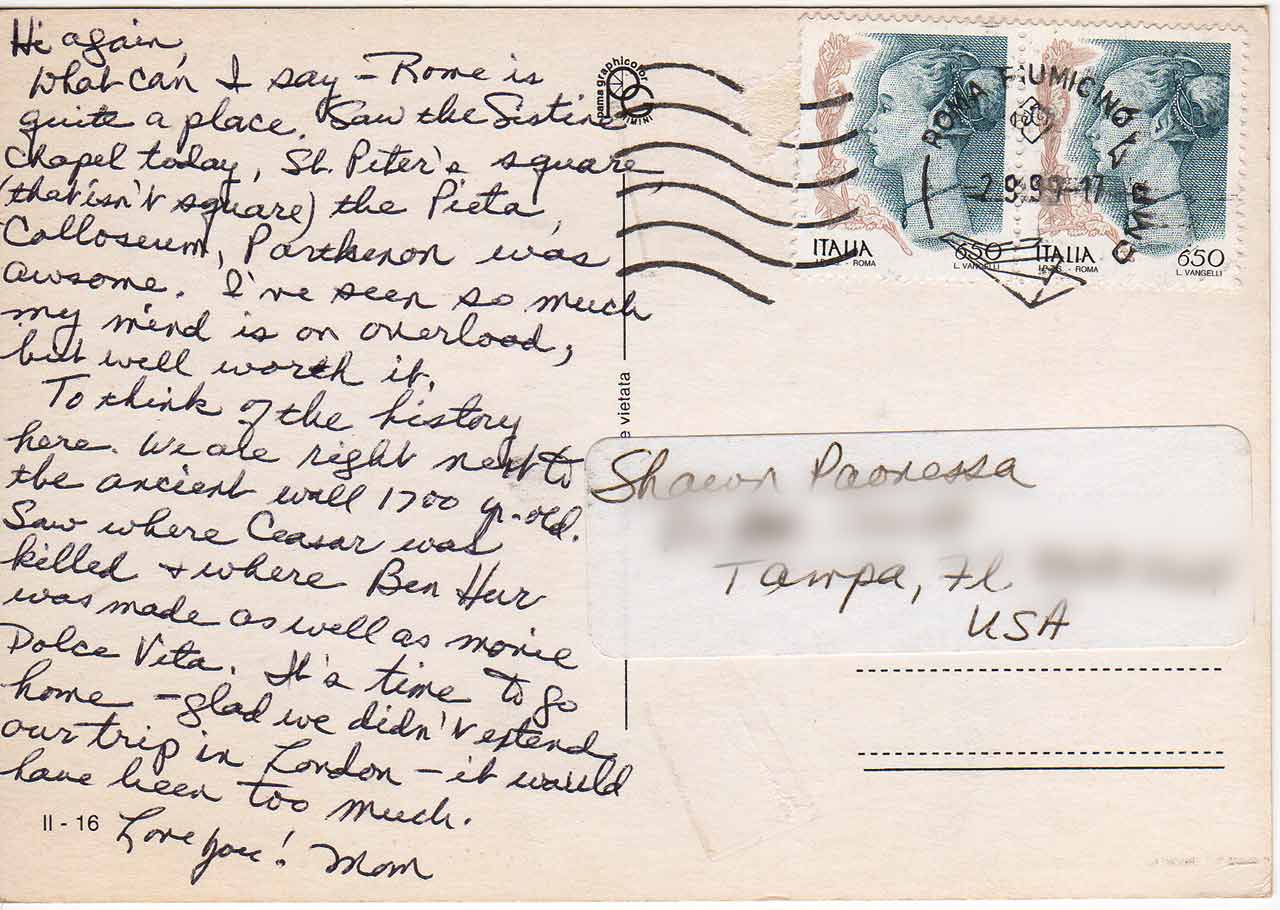 Hi again,
What can I say – Rome is
quite a place. Saw the Sistine
Chapel today, St. Peter's square
(that isn't square) the Pieta,
Colloseum, Parthenon was
awsome. I've seen so much
my mind is on overload,
but well worth it.
To think of the history
here. We are right next to
the ancient wall 1700 yr-old.
Saw where Ceasar was
killed + where Ben Hur
was made as well as movie
Dolce Vita. It's time to go
home – glad we didn't extend
our trip in London – it would
have been too much.
Love you! Mom
II - 16
pama graphicolor
RIMINI
e vietata
ROMA FIUMICINO
CMP
2.9.99-17
ITALIA
650
I.P.Z.S. - ROMA
L. VANGELLI
ITALIA
650
I.P.Z.S. - ROMA
L. VANGELLI
Shawn Paonessa
Tampa, Fl
USA